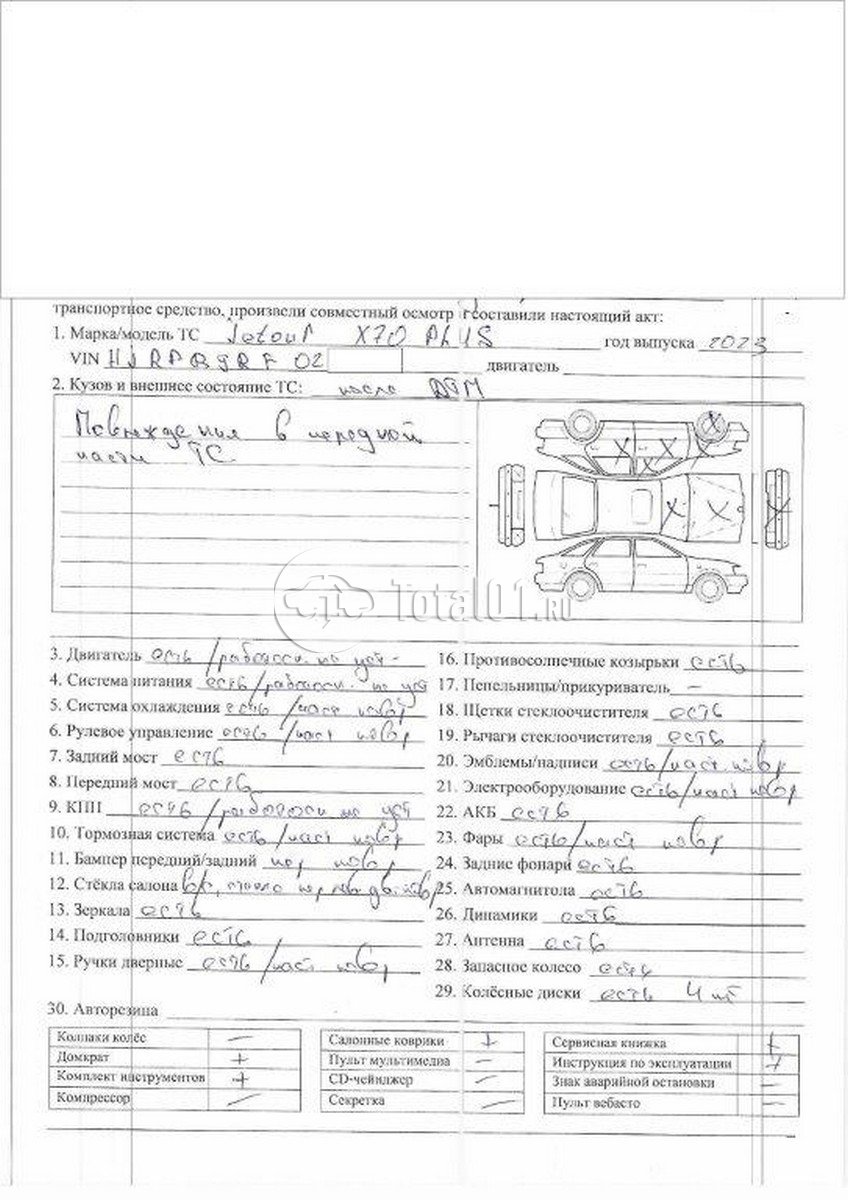 транспортное средство, произвели совместный осмотр и составили настоящий акт:
1. Марка/модель ТС Jetour X70 PLUS год выпуска 2023
VIN HJRPBGRF 02 двигатель
2. Кузов и внешнее состояние ТС: после ДТП
Повреждения в передной
части ТС
Total01.RU
3. Двигатель есть /работосп не уст-
16. Противосолнечные козырьки есть
4. Система питания есть/работосп. не уст
17. Пепельницы/прикуриватель –
5. Система охлаждения есть /част повр
18. Щетки стеклоочистителя есть
6. Рулевое управление есть /част повр
19. Рычаги стеклоочистителя есть
7. Задний мост есть
20. Эмблемы/надписи есть/част повр
8. Передний мост есть
21. Электрооборудование есть/част повр
9. КПП есть /работосп не уст
22. АКБ есть
10. Тормозная система есть /част повр
23. Фары есть/част повр
11. Бампер передний/задний пер повр
24. Задние фонари есть
12. Стёкла салона стекло повр
25. Автомагнитола есть
13. Зеркала есть
26. Динамики есть
14. Подголовники есть
27. Антенна есть
15. Ручки дверные есть /част повр
28. Запасное колесо есть
29. Колёсные диски есть 4 шт
30. Авторезина
Колпаки колёс –
Салонные коврики +
Сервисная книжка +
Домкрат +
Пульт мультимедиа –
Инструкция по эксплуатации +
Комплект инструментов +
CD-чейнджер –
Знак аварийной остановки –
Компрессор –
Секретка –
Пульт вебасто –